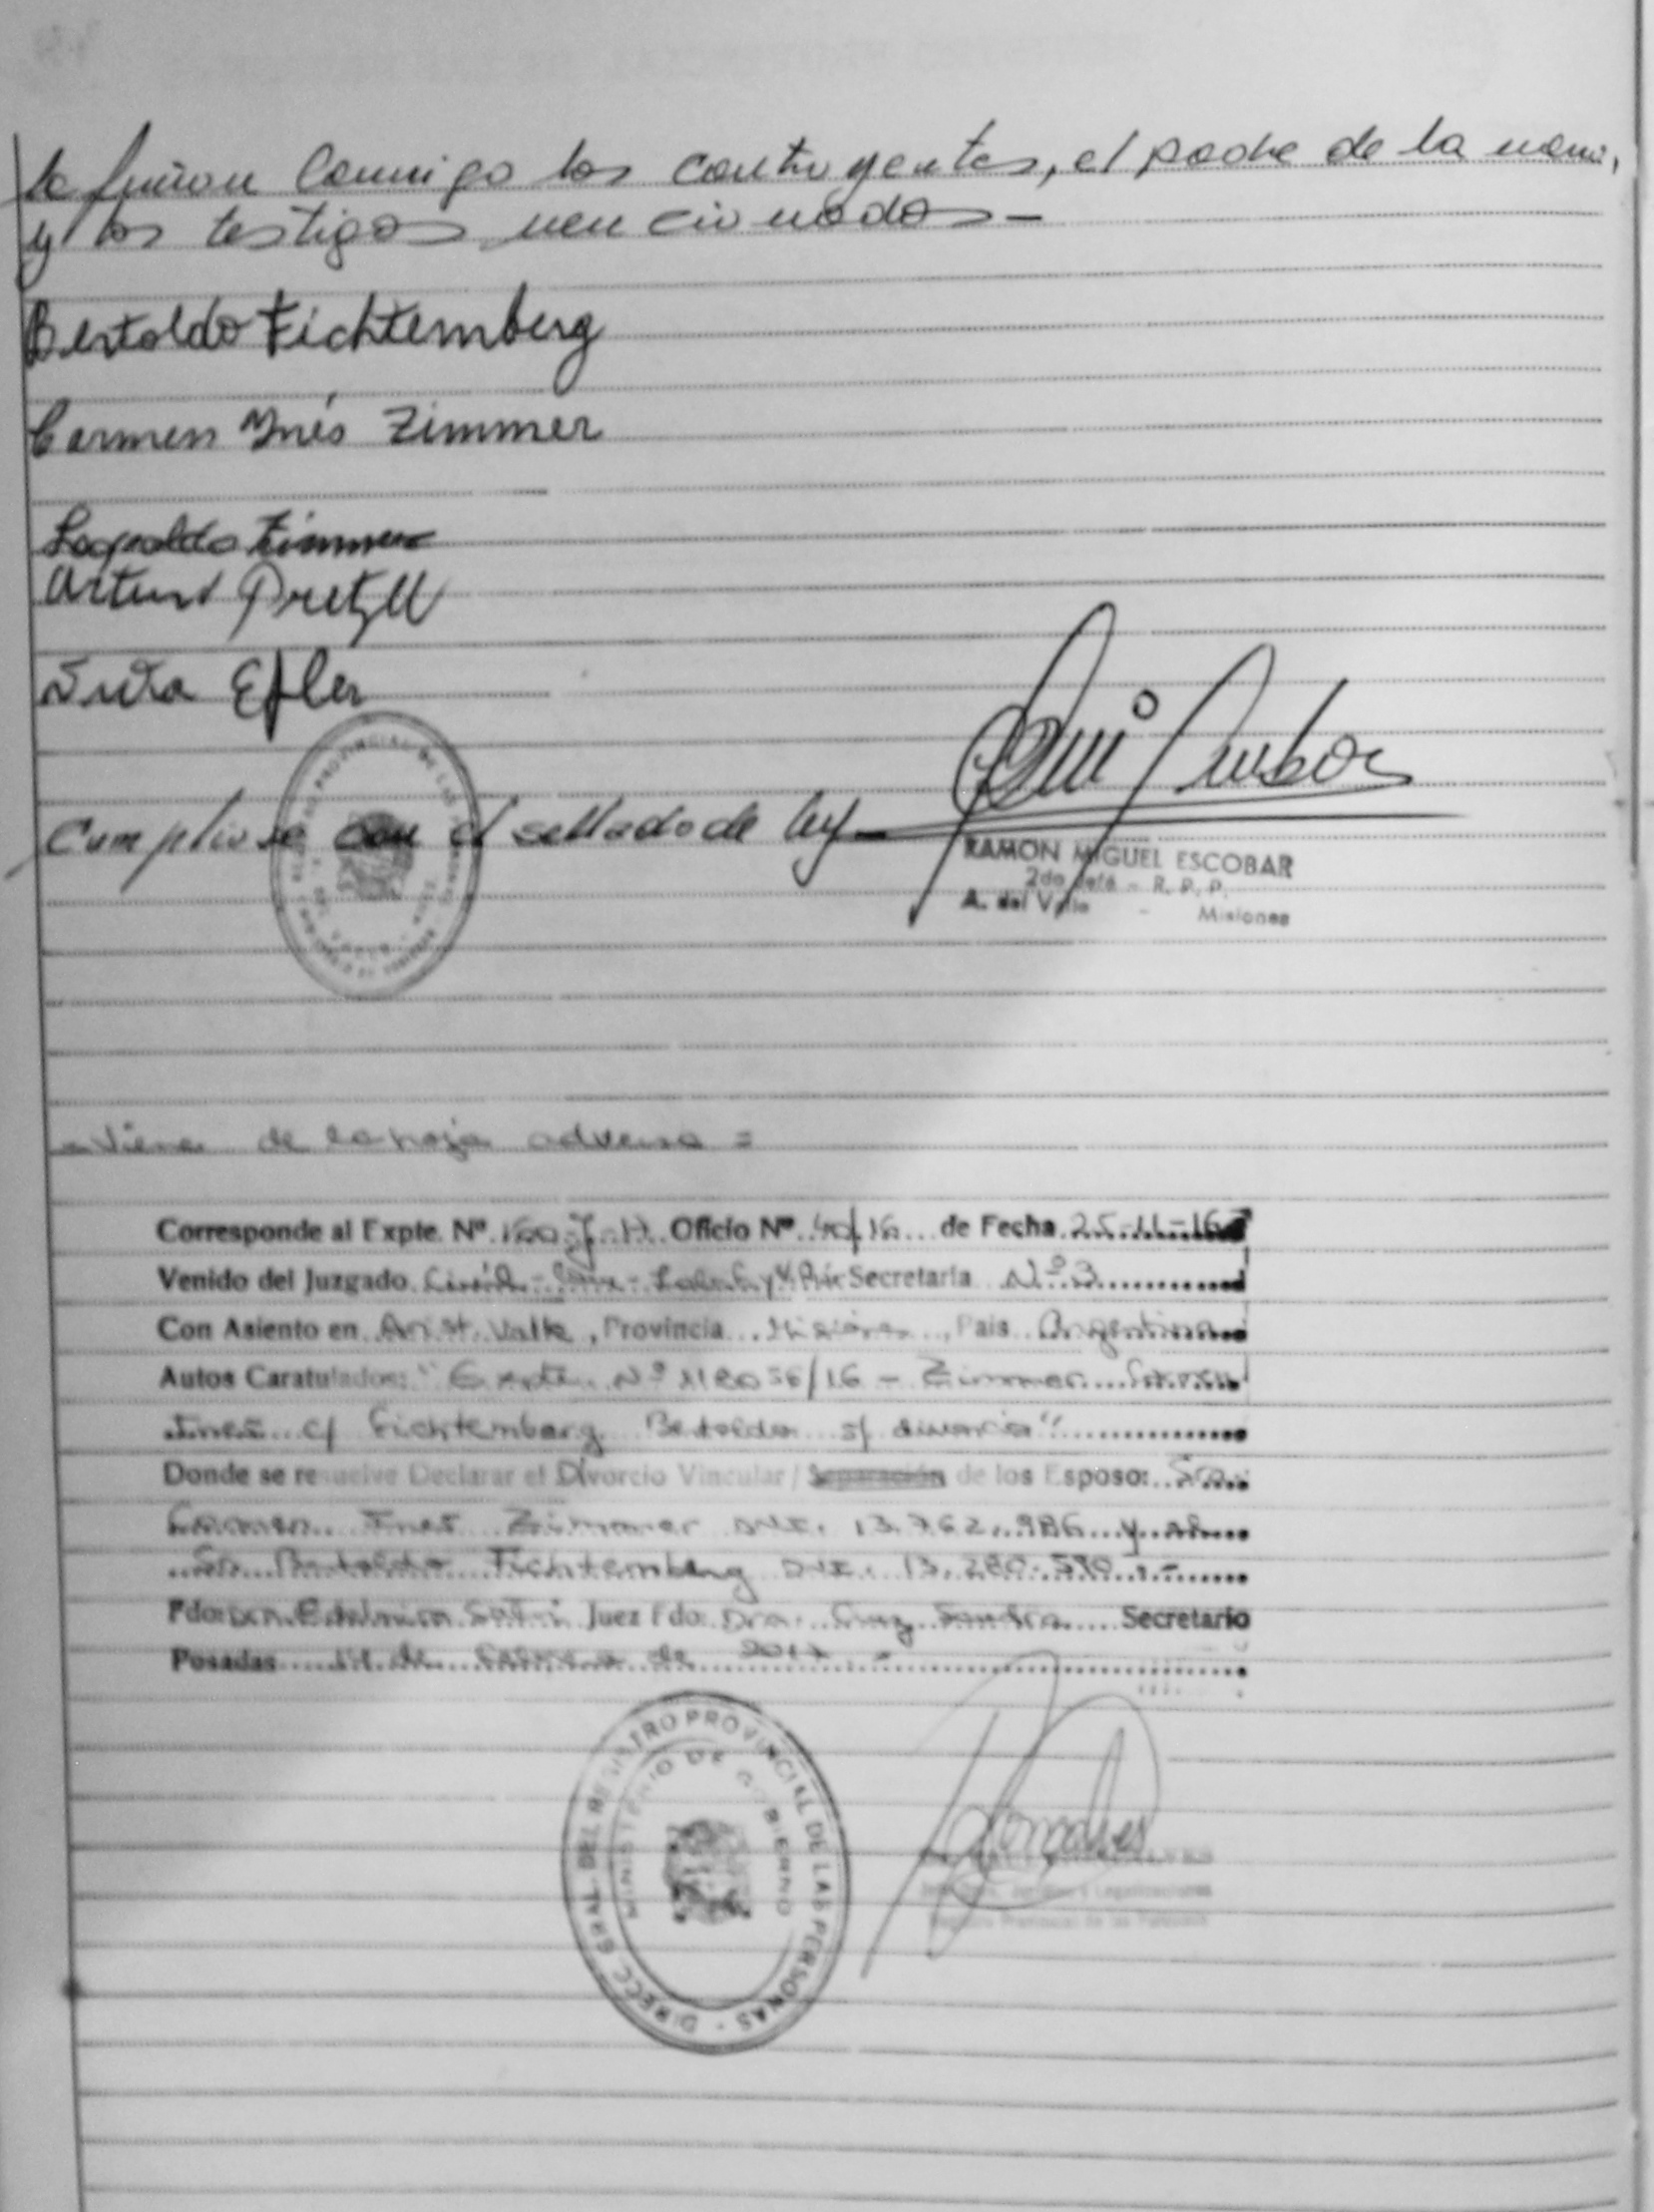 la firman conmigo los contrayentes, el padre de la novia,
y los testigos mencionados -
Bertoldo Fichtemberg
Carmen Inés Zimmer
Leopoldo Zimmer
Arturo Pretzll
Efler
Cumpliose con el sellado de ley -
RAMON MIGUEL ESCOBAR
2do Jefe - R. P. P.
A. del Valle - Misiones
= Viene de la hoja adversa =
Corresponde al Expte. Nº Oficio Nº 40/16 de Fecha 25-11-16
Venido del Juzgado Secretaría Nº 3
Con Asiento en Arist. Valle, Provincia Misiones, País Argentina
Autos Caratulados: " Expte. Nº /16 - Zimmer Carmen
Ines c/ Fichtemberg Bertoldo s/ divorcio"
Donde se resuelve Declarar el Divorcio Vincular / Separación de los Esposo: Sra.
Carmen Ines Zimmer DNI. 13.762.986 y al
Sr. Bertoldo Fichtemberg DNI. 13.280.590.-
Fdo: Dra. Juez Fdo: Dra. Cruz Sandra Secretario
Posadas de de 2017 -
DIRECC. GRAL. DEL REGISTRO PROVINCIAL DE LAS PERSONAS -
MINISTERIO DE GOBIERNO
Registro Provincial de las Personas